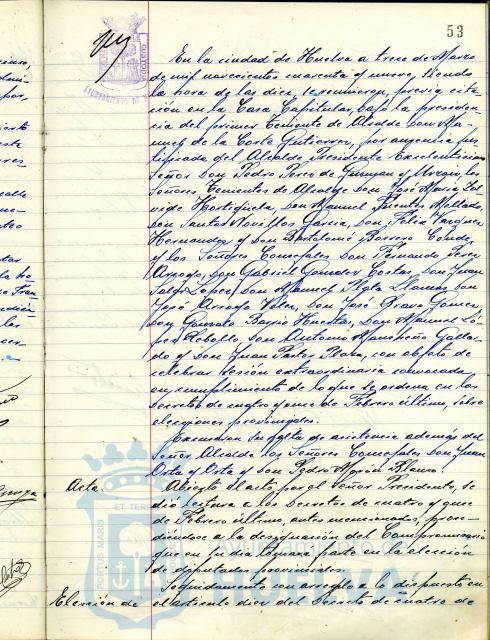 53
En la ciudad de Huelva a trece de Marzo
de mil novecientos cuarenta y nueve, siendo
la hora de las diez, se reunieron, previa cita-
ción en la Casa Capitular, bajo la presiden-
cia del primer Teniente de Alcalde Don Ma-
nuel de la Corte Gutierrez, por ausencia jus-
tificada del Alcalde Presidente Excelentísimo
Señor Don Pedro Perez de Guzman y Urzaiz, los
Señores Tenientes de Alcalde Don José María
Hortigüela, Don Manuel Fuentes Mellado,
Don Santos Novillos Garcia, Don Felix Vazquez
Hernandez y Don Bartolomé Borrero Conde,
y los Señores Concejales Don Fernando Perez
Don Gabriel Gonzalez Costas, Don Juan
Lopez, Don Manuel Llamas, Don
José Arroyo Velez, Don José Bravo Gomez,
Don Gonzalo Barrio Huerta, Don Manuel Ló-
pez Rebollo, Don Antonio Manzano Galla-
do y Don Juan Pastor Plata, con objeto de
celebrar sesión extraordinaria convocada
en cumplimiento de lo que se ordena en los
Decretos de cuatro y once de Febrero último, sobre
elecciones provinciales.
Excusaron su falta de asistencia además del
Señor Alcalde los Señores Concejales Don Juan
Orta y Orta y Don Pedro Morón Blanco
Acta.
Abierto el acto por el Señor Presidente, se
dió lectura a los Decretos de cuatro y once
de Febrero último, antes mencionados, proce-
diéndose a la designación del Compromisario
que en su día tomará parte en la elección
de diputados provinciales.
Elección de
Seguidamente con arreglo a lo dispuesto en
el artículo diez del Decreto de cuatro de
PORTUS MARIS
ET TERRAE
Ayuntamiento de
HUELVA